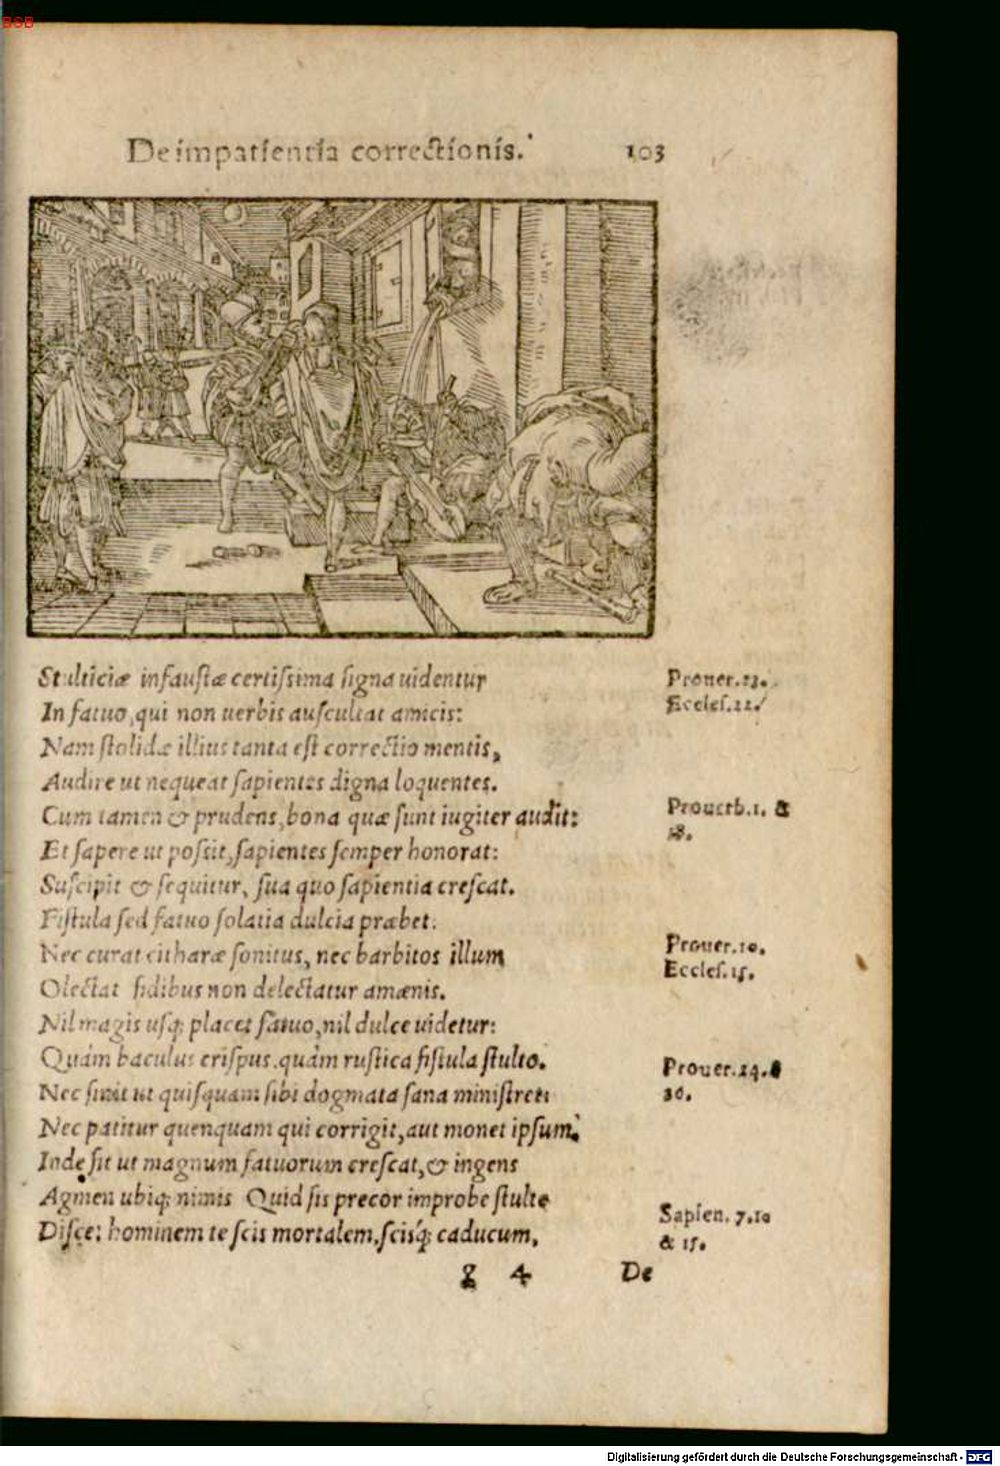 BSB
De impatientia correctionis. 103
Stulticiæ infaustæ certissima signa uidentur
In fatuo, qui non uerbis auscultat amicis:
Nam stolidæ illius tanta est correctio mentis,
Audire ut nequeat sapientes digna loquentes.
Cum tamen & prudens, bona quæ sunt iugiter audit:
Et sapere ut possit, sapientes semper honorat:
Suscipit & sequitur, sua quo sapientia crescat.
Fistula sed fatuo solatia dulcia præbet:
Nec curat citharæ sonitus, nec barbitos illum
Olectat fidibus non delectatur amænis.
Nil magis usq; placet fatuo, nil dulce uidetur:
Quàm baculus crispus, quàm rustica fistula stulto.
Nec sinit ut quisquam sibi dogmata sana ministret:
Nec patitur quenquam qui corrigit, aut monet ipsum.
Inde fit ut magnum fatuorum crescat, & ingens
Agmen ubiq; nimis Quid sis precor improbe stulte
Disce: hominem te scis mortalem, scisq́; caducum,
Prouer.13.
Eccles.22.
Prouerb.1. &
18.
Prouer.10.
Eccles.15.
Prouer.24. &
26.
Sapien. 7.10
& 15.
g 4 De
Digitalisierung gefördert durch die Deutsche Forschungsgemeinschaft - DFG